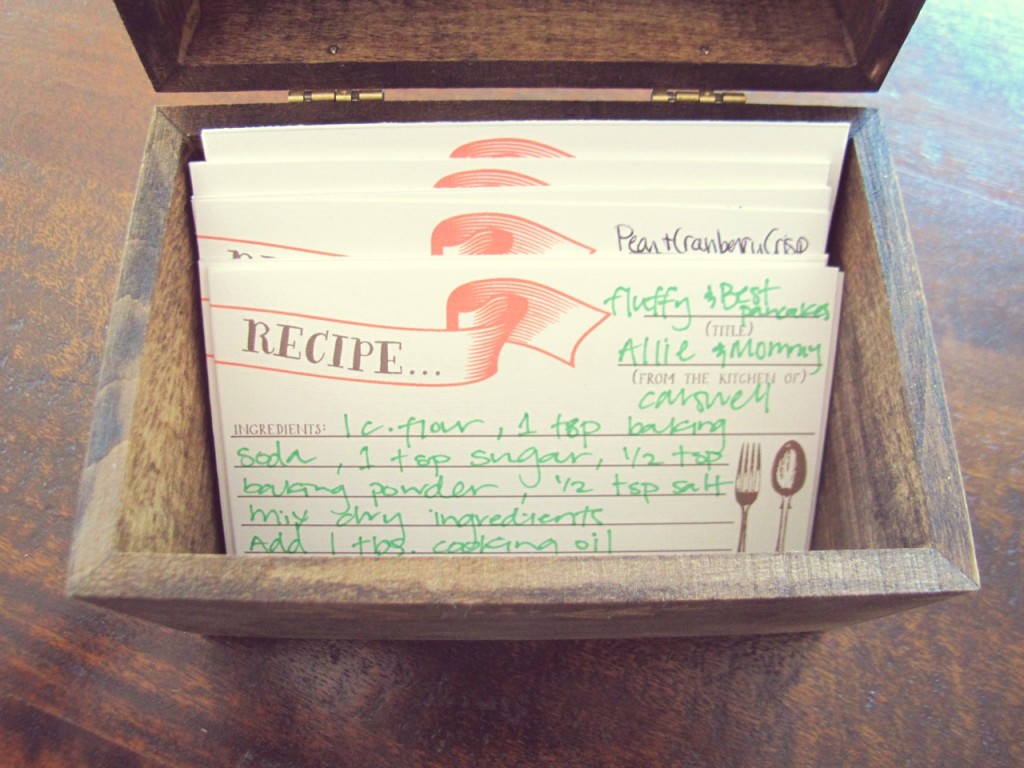 Pear + Cranberry Crisp
RECIPE...
fluffy & Best
pancakes
(TITLE)
Allie & Mommy
(FROM THE KITCHEN OF)
Carswell
INGREDIENTS: 1 c. flour, 1 tsp baking
soda, 1 tsp sugar, 1/2 tsp
baking powder, 1/2 tsp salt
mix dry ingredients
Add 1 tbs. cooking oil